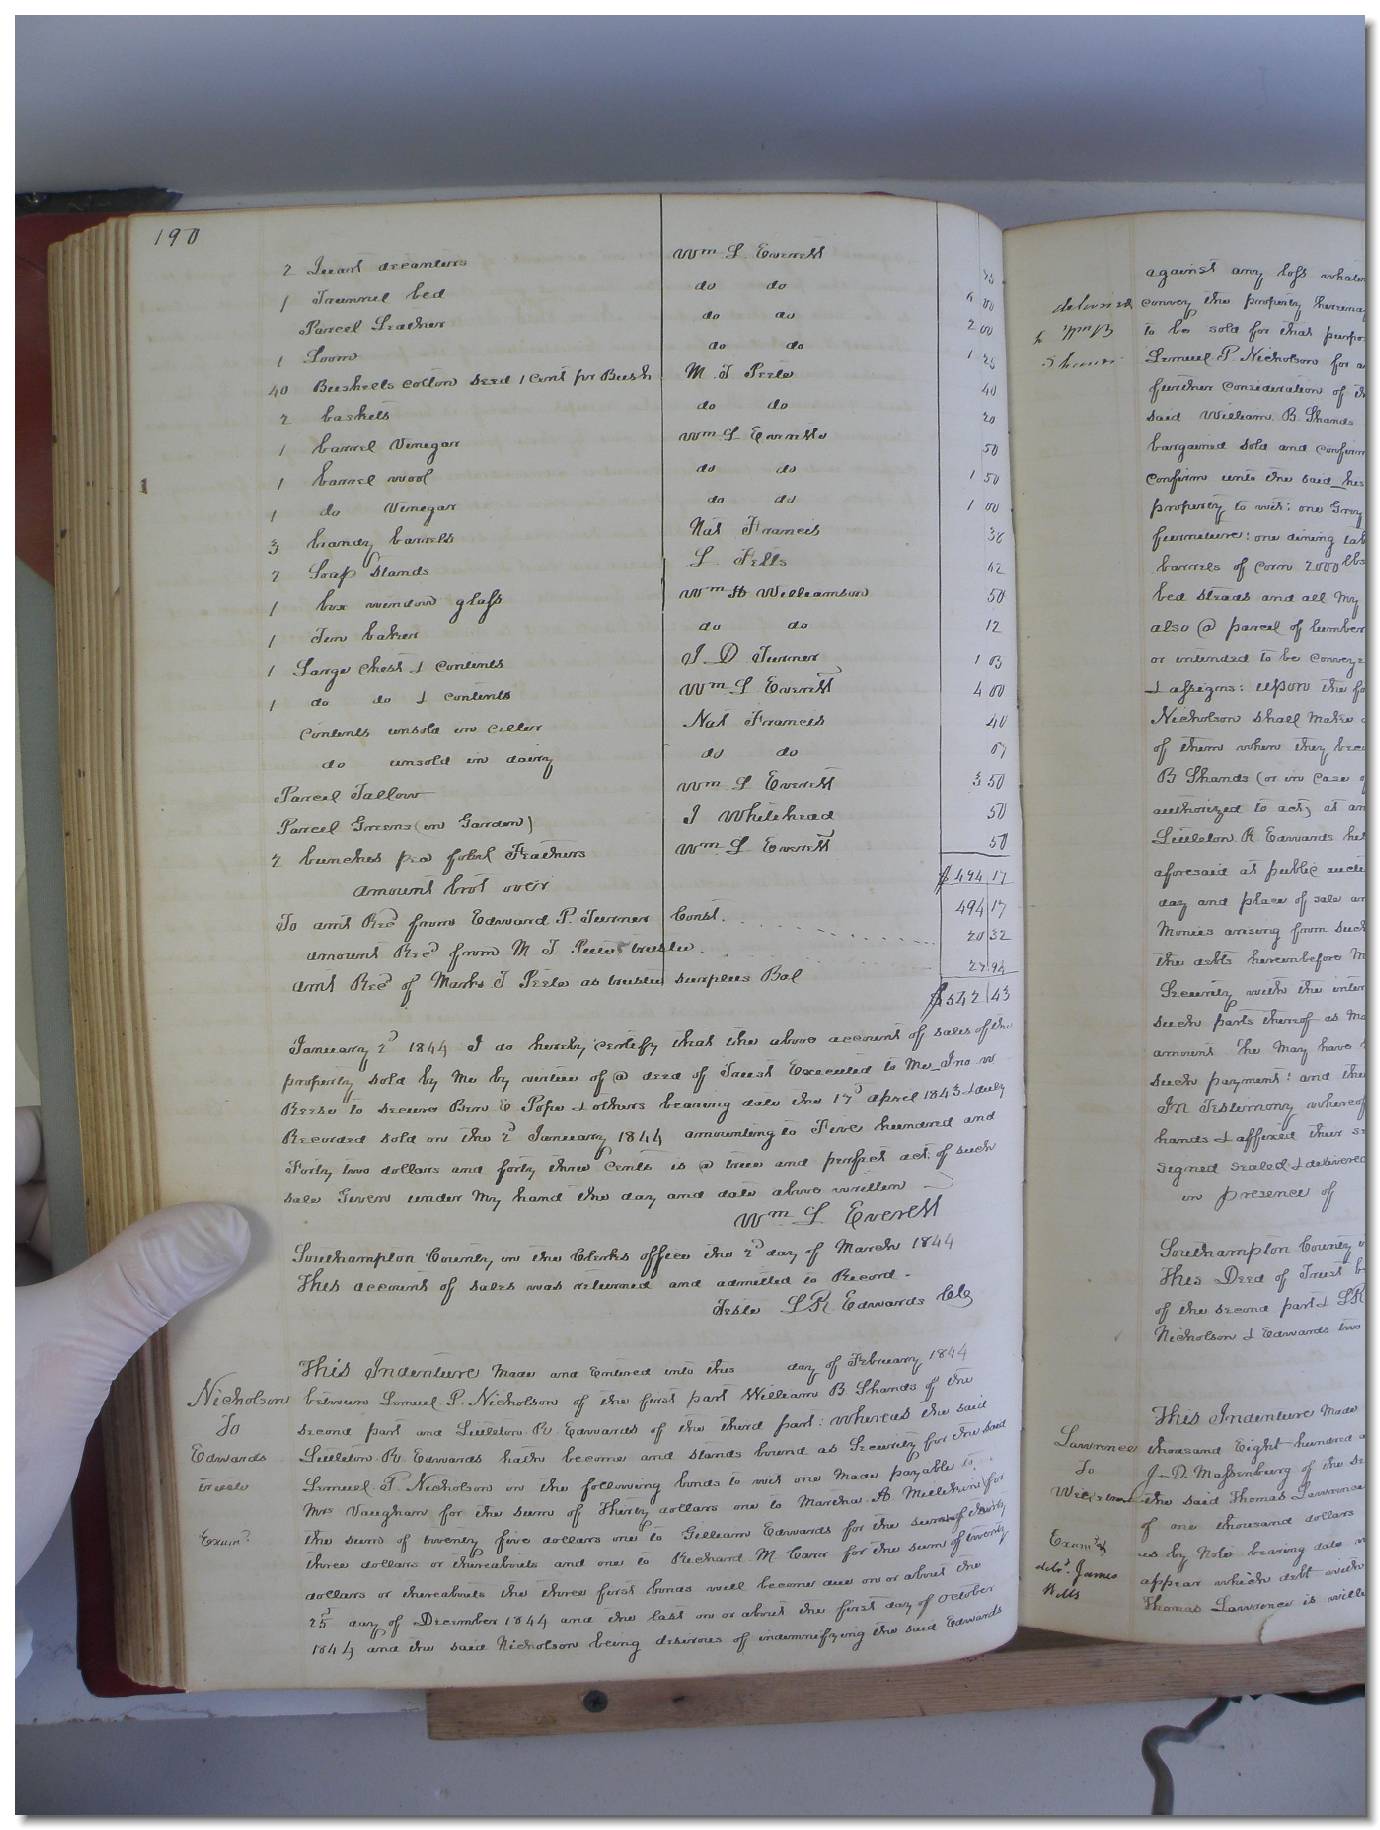 190
2 Quart decanters Wm L Everett 25
1 Trunnel bed do do 00
Parcel Leather do do 2 00
1 Loom do do 1 25
40 Bushells cotton Seed 1 Cent pr Bush M. T Peele 40
2 baskets do do 20
1 barrel Vinegar Wm L Everette 50
1 barrel wool do do 1 50
1 do Vinegar do do 1 00
3 brandy barrels Nat Francis 36
2 Soap Stands L Fells 42
1 box window glass Wm H Williamson 50
1 Tin baker do do 12
1 Large Chest & Contents J. D Turner 1 03
1 do do & contents Wm L Everett 4 00
Contents unsold in Celler Nat Francis 40
do unsold in dairy do do 07
Parcel Tallow Wm L Everett 3 50
Parcel Greens (in Garden) J Whitehead 50
2 bunches pea Feathers Wm L Everett 50
amount brot over $494 17
To amt Recd from Edward P. Turner Const. 494 17
amount Recd from M T trustee. 20 32
amt Recd of Marks T Peele as trustee surplus Bal 27 94
$542 43
January 2d 1844 I do hereby certify that the above account of sales of the
property sold by Me by virtue of @ deed of Trust Executed to Me Jno W
Reese to secure Ben E Pope & others bearing date the 17d april 1843 & duly
Recorded sold on the 2d January 1844 amounting to Five hundred and
Forty two dollars and forty three Cents is @ true and perfect act: of such
sale Given under My hand the day and date above written
Wm L Everett
Southampton County in the Clerks office the 2d day of March 1844
This account of sales was returned and admitted to Record.
Teste L R Edwards Clk
This Indenture Made and Entered into this day of February 1844
Nicholson between Lemuel P. Nicholson of the first part William B. Shands of the
To second part and Littleton R Edwards of the third part: Whereas the said
Edwards Littleton R Edwards hath become and stands bound as Security for the said
trustee Lemuel P. Nicholson in the following bonds to wit one Made payable to
Mrs Vaugham for the sum of Thirty dollars one to Martha A for
Examd the sum of twenty five dollars one to Gilliam Edwards for the sum of thirty
three dollars or thereabouts and one to Richard M Carr for the sum of twenty
dollars or thereabouts the three first bonds will become due on or about the
25d day of December 1844 and the last on or about the first day of October
1844 and the said Nicholson being desirous of indemnifying the said Edwards
against any loss
delivered convey the property
to WmB to be sold for that
Shands Lemuel P. Nicholson for
further Consideration of
said William B Shands
bargained sold and
confirm unto the said his
property to wit: one Grey
furniture: one dining
barrels of corn 2000 lbs
bed steads and all My
also @ parcel of lumber
or intended to be
& assigns: upon the
Nicholson shall Make
of them when they
B Shands (or in Case
authorized to act) at
Littleton R Edwards
aforesaid at public
day and place of sale
Monies arising from such
the debts hereinbefore
Security with the
such parts thereof as
amount he may have
such payment: and the
In Testimony whereof
hands & affixed their
signed sealed & delivered
in presence of
Southampton County
This Deed of Trust
of the second part & LR
Nicholson & Edwards two
This Indenture Made
Lawrence thousand Eight hundred
To J. D. Massenburg of the
the said Thomas Lawrence
of one thousand dollars
Examd as by Note bearing date
deld. James appear which debt with
Wills Thomas Lawrence is